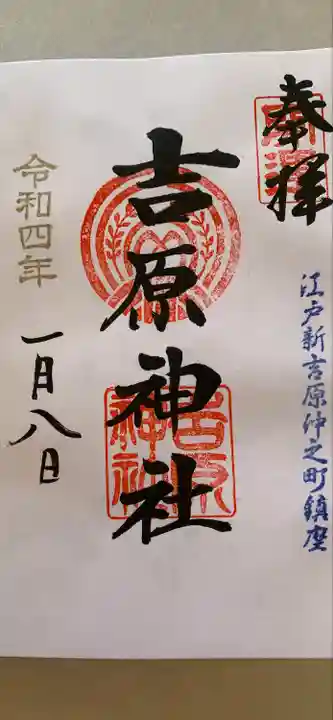 奉拝
江戸新吉原仲之町鎮座
吉原神社
令和四年
一月八日
吉原
神社